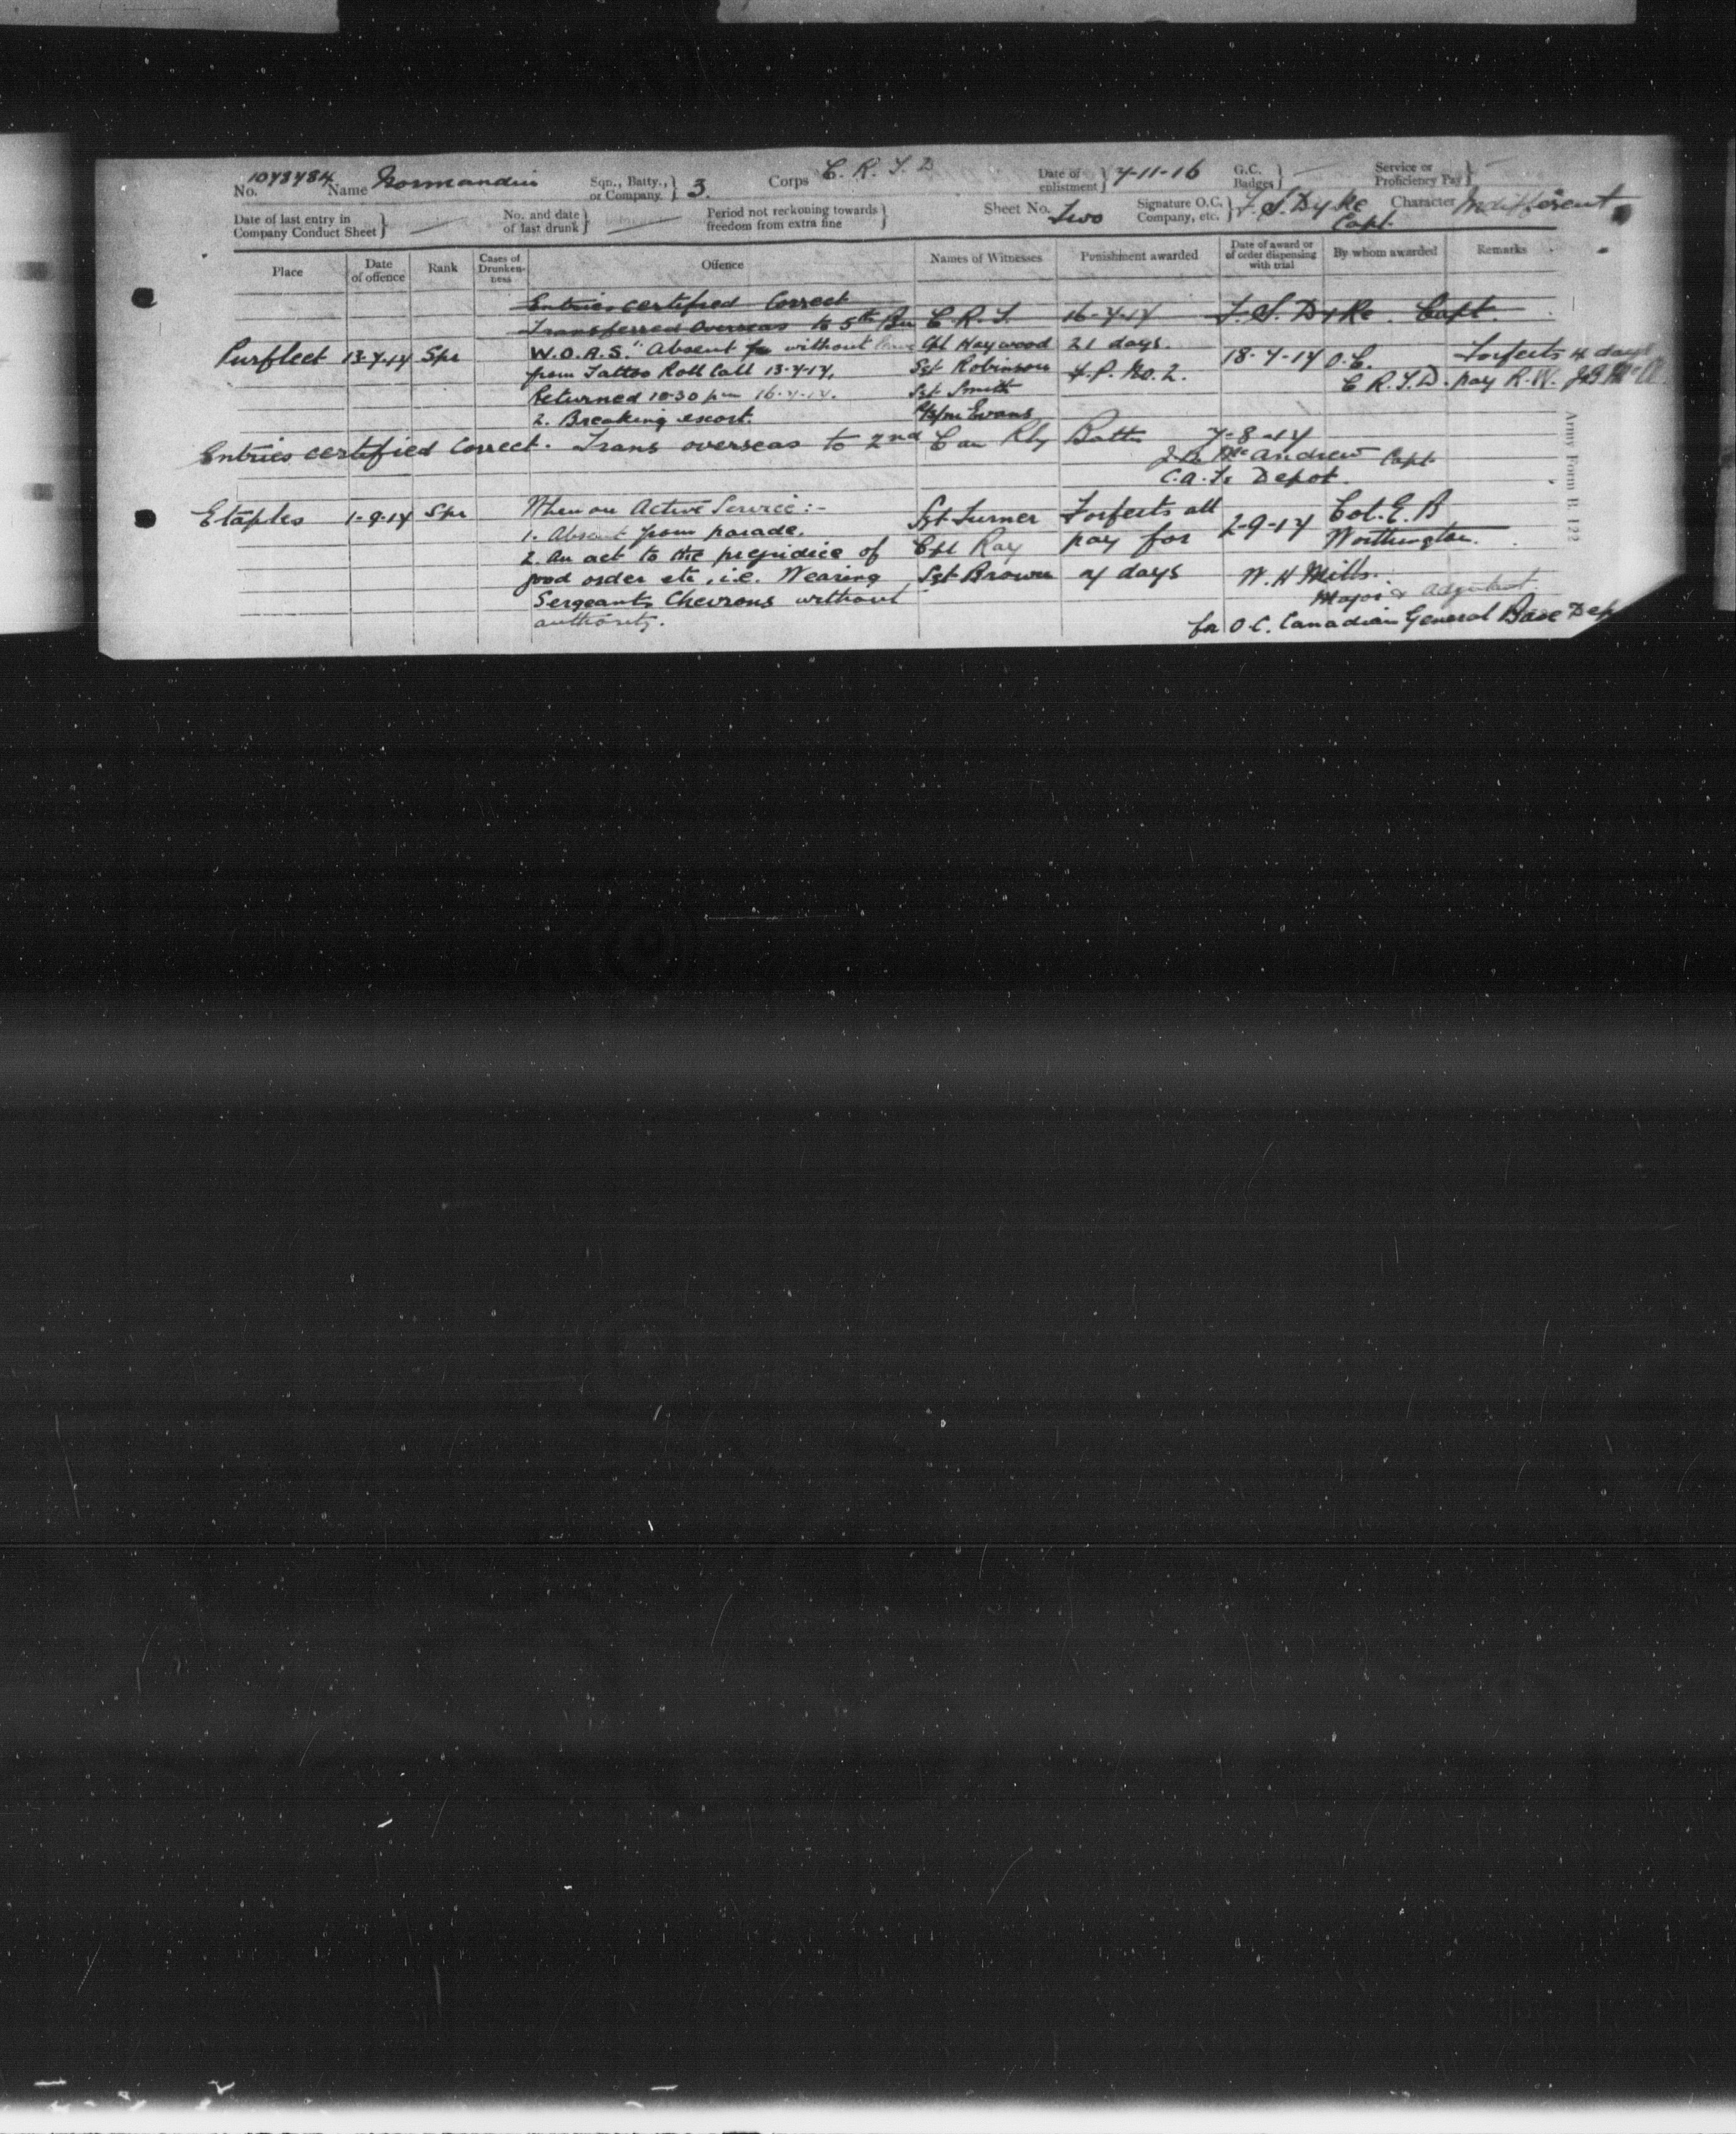 No. 1078784 Name Normandin Sqn., Batty., or Company } 3. Corps C. R. T. D Date of enlistment } 7-11-16 G.C. Badges } — Service or Proficiency Pay } —
Date of last entry in Company Conduct Sheet } — No. and date of last drunk } — Period not reckoning towards freedom from extra fine } Sheet No. Two Signature O.C. Company, etc. } F. S. Dyke Capt. Character Indifferent
Place Date of offence Rank Cases of Drunkenness Offence Names of Witnesses Punishment awarded Date of award or of order dispensing with trial By whom awarded Remarks
Entries certified Correct
Transferred Overseas to 5th Bn C. R. T. 16-7-17 F. S. Dyke Capt
Purfleet 13-7-17 Spr W.O.A.S. Absent without leave Cpl Haywood 21 days. 18-7-17 O.C. Forfeits 4 days
from Tattoo Roll Call 13-7-17. Sgt Robinson F.P. No. 2. C.R.T.D. pay R.W.
Returned 10-30 pm 16-7-17. Sgt Smith
2. Breaking escort. Evans
Entries certified Correct. Trans overseas to 2nd Can Rly Battn 7-8-17
McAndrew Capt.
Depot.
Etaples 1-9-17 Spr When on Active Service:- Sgt Turner Forfeits all 2-9-17 Col. E. B
1. Absent from parade. Cpl Ray pay for Worthington.
2. An act to the prejudice of
good order etc, i.e. Wearing Sgt Brown 7 days W. H Mills.
Sergeants Chevrons without Major & Adjutant
authority. for O.C. Canadian General Base Dep
Army Form B. 122